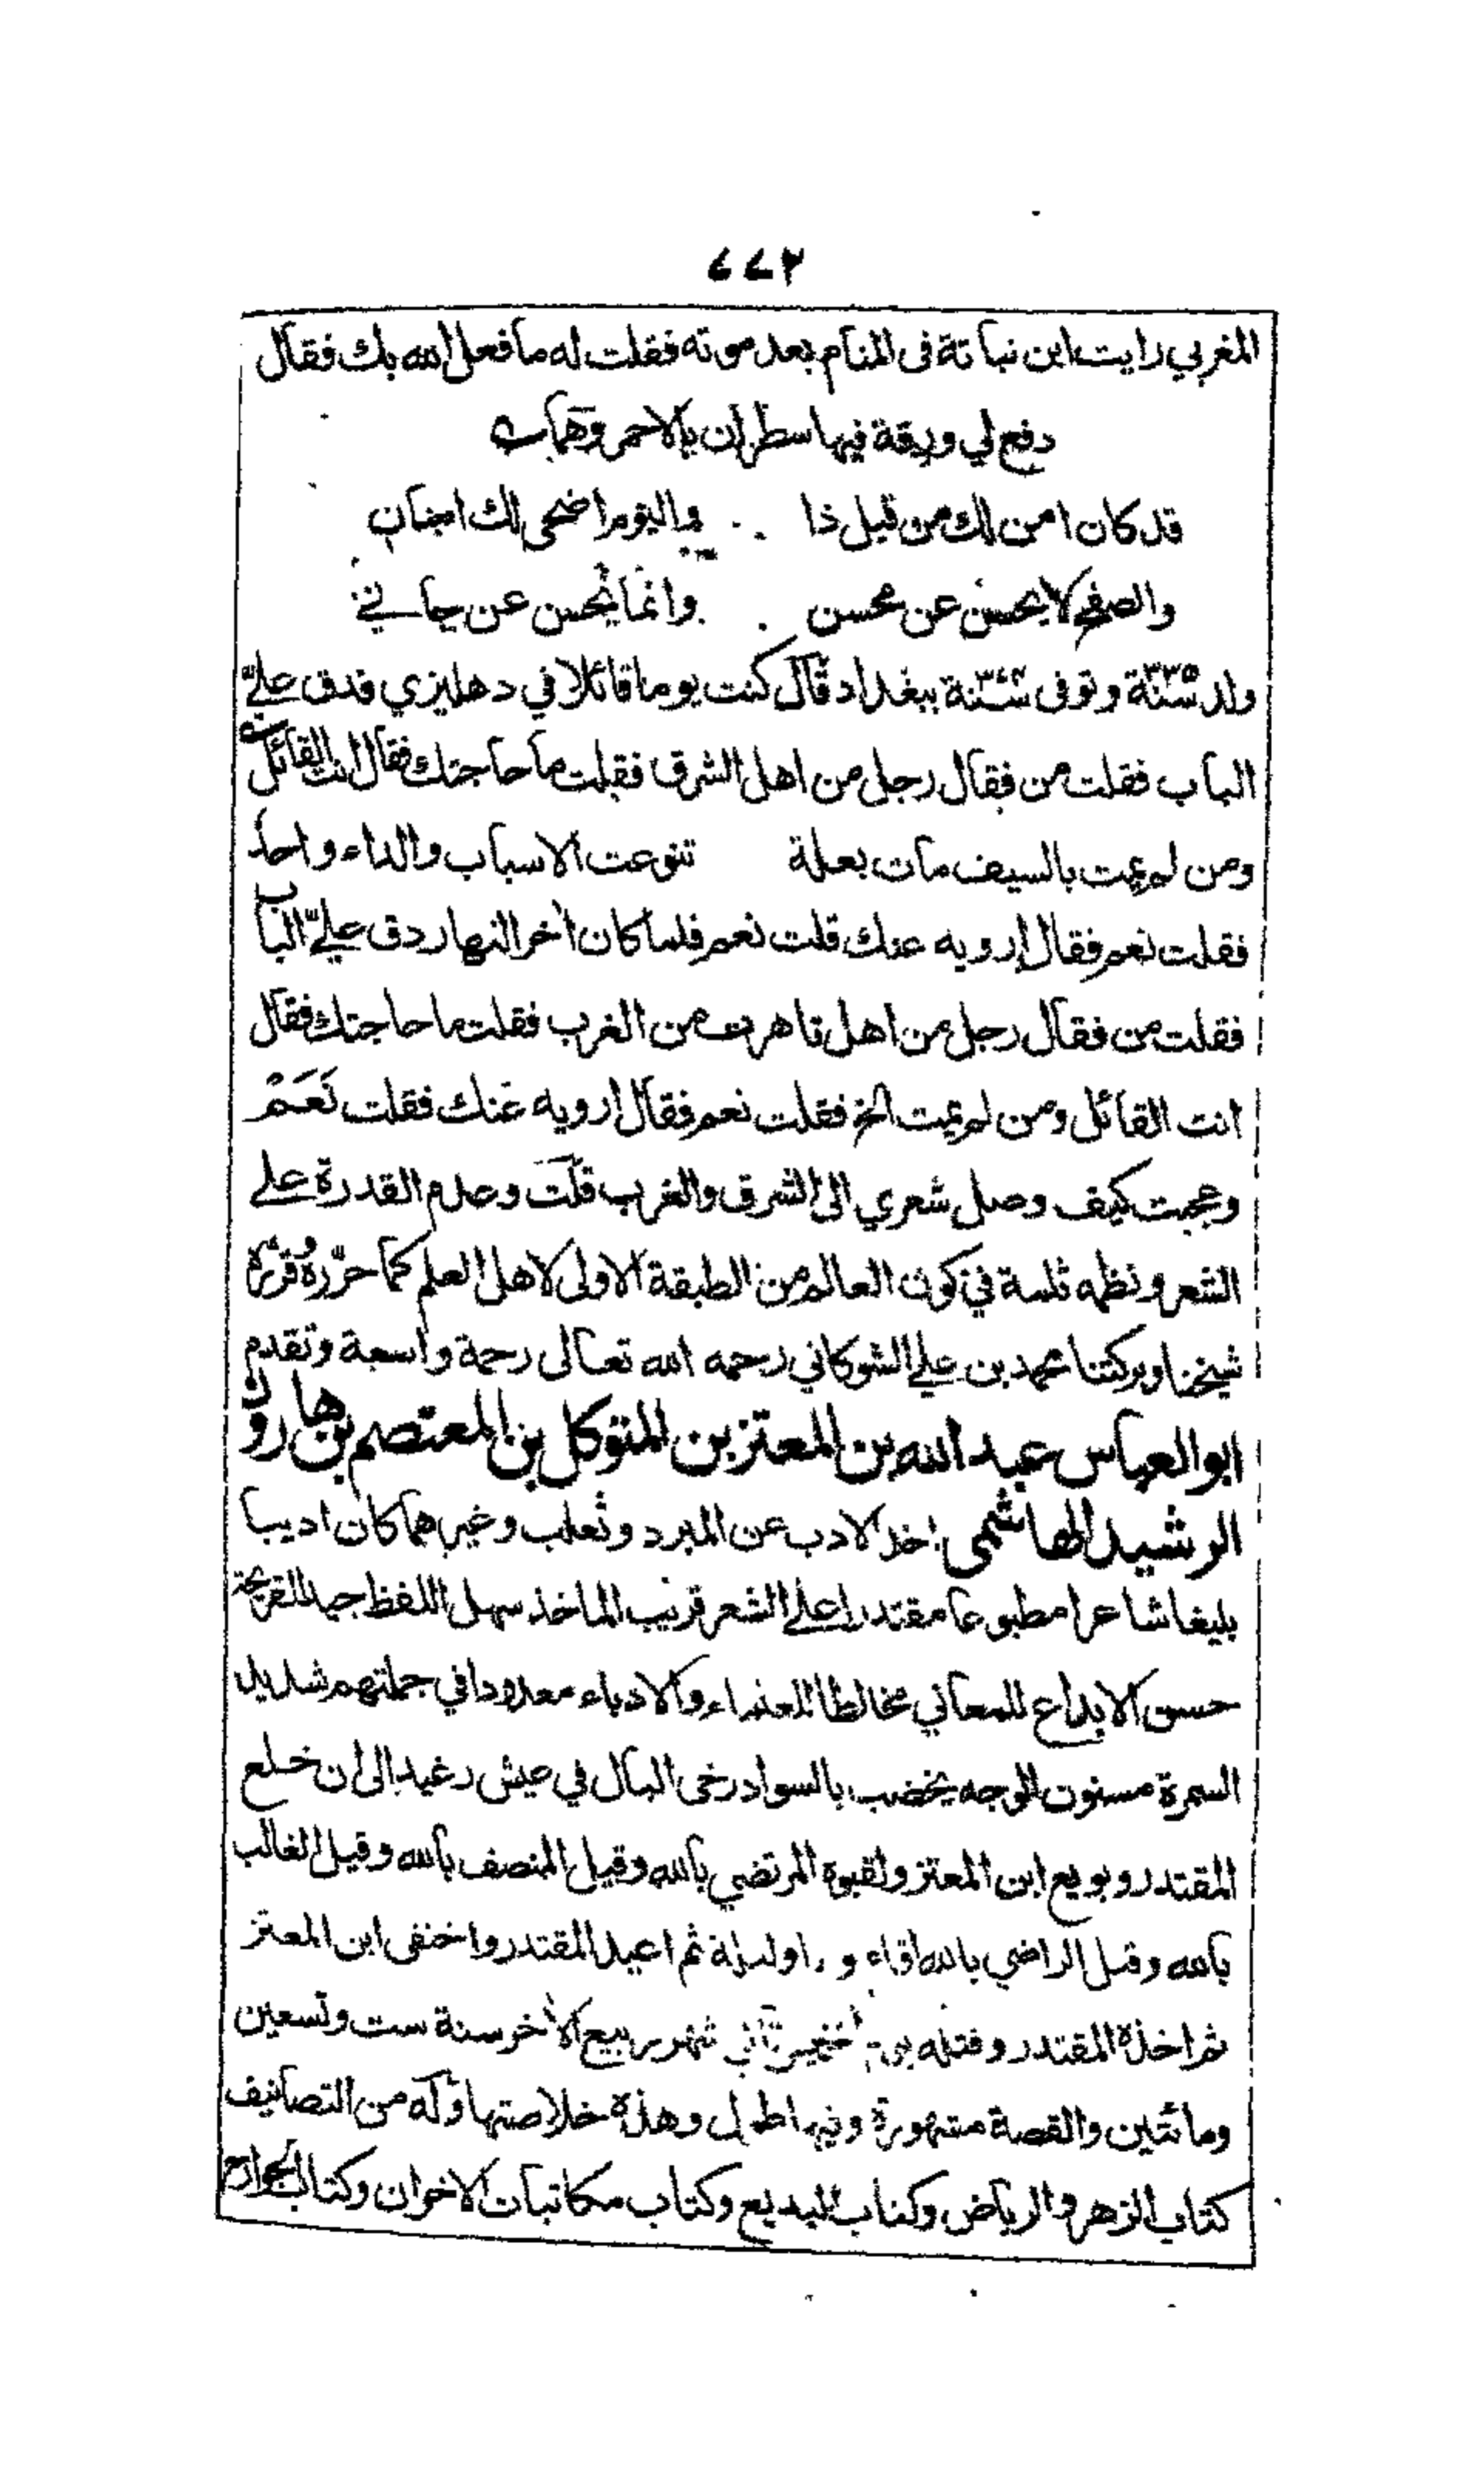 ٧٧٢
المغربي رايت ابن نباتة فى المنام بعد موته فقلت له ما فعل الله بك فقال
دفع لي ورقة فيها سطران بالاحمر وهما
قد كان امن لك من قبل ذا واليوم اضحى لك امنان
والصفح لا يحسن عن محسن وانما يحسن عن جاني
ولد سنة ٣٣٥ وتوفى سنة ببغداد قال كنت يوما قائلا في دهليزي فدق عليّ
الباب فقلت من فقال رجل من اهل الشرق فقلت ما حاجتك فقال انت القائل
ومن لم يمت بالسيف مات بعلة تنوعت الاسباب والداء واحد
فقلت نعم فقال ارويه عنك قلت نعم فلما كان اخر النهار دق عليّ الباب
فقلت من فقال رجل من اهل تاهرت من الغرب فقلت ما حاجتك فقال
انت القائل ومن لم يمت الخ فقلت نعم فقال ارويه عنك فقلت نَعَمْ
وعجبت كيف وصل شعري الى الشرق والغرب قلت وعدم القدرة على
الشعر ونظمه ثلمة في كون العالم من الطبقة الاولى لاهل العلم كما حرّره وقرره
شيخنا وبركتنا محمد بن علي الشوكاني رحمه الله تعالى رحمة واسعة وتقدم
ابو العباس عبد الله بن المعتز بن المتوكل بن المعتصم بن هارون
الرشيد الهاشمى اخذ الادب عن المبرد وثعلب وغيرهما كان اديبا
بليغا شاعرا مطبوعا مقتدرا على الشعر قريب الماخذ سهل اللفظ جيد القريحة
حسن الابداع للمعاني مخالطا للعلماء والادباء معدودا في جملتهم شديد
السمرة مسنون الوجه يخضب بالسواد رخى البال في عيش رغيد الى ان خلع
المقتدر وبويع ابن المعتز ولقبوه المرتضي بالله وقيل المنصف بالله وقيل الغالب
بالله وقيل الراضي بالله اقام وليلة ثم اعيد المقتدر واختفى ابن المعتز
ثم اخذه المقتدر وقتله شهر ربيع الاخر سنة ست وتسعين
ومائتين والقصة مشهورة وفيها طول وهذه خلاصتها وله من التصانيف
كتاب الزهر والرياض وكتاب البديع وكتاب مكاتبات الاخوان وكتاب الجوارح